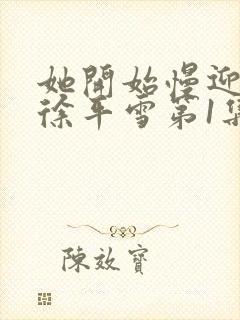 她開始慢迎
徐平雪第1集
陳效寶